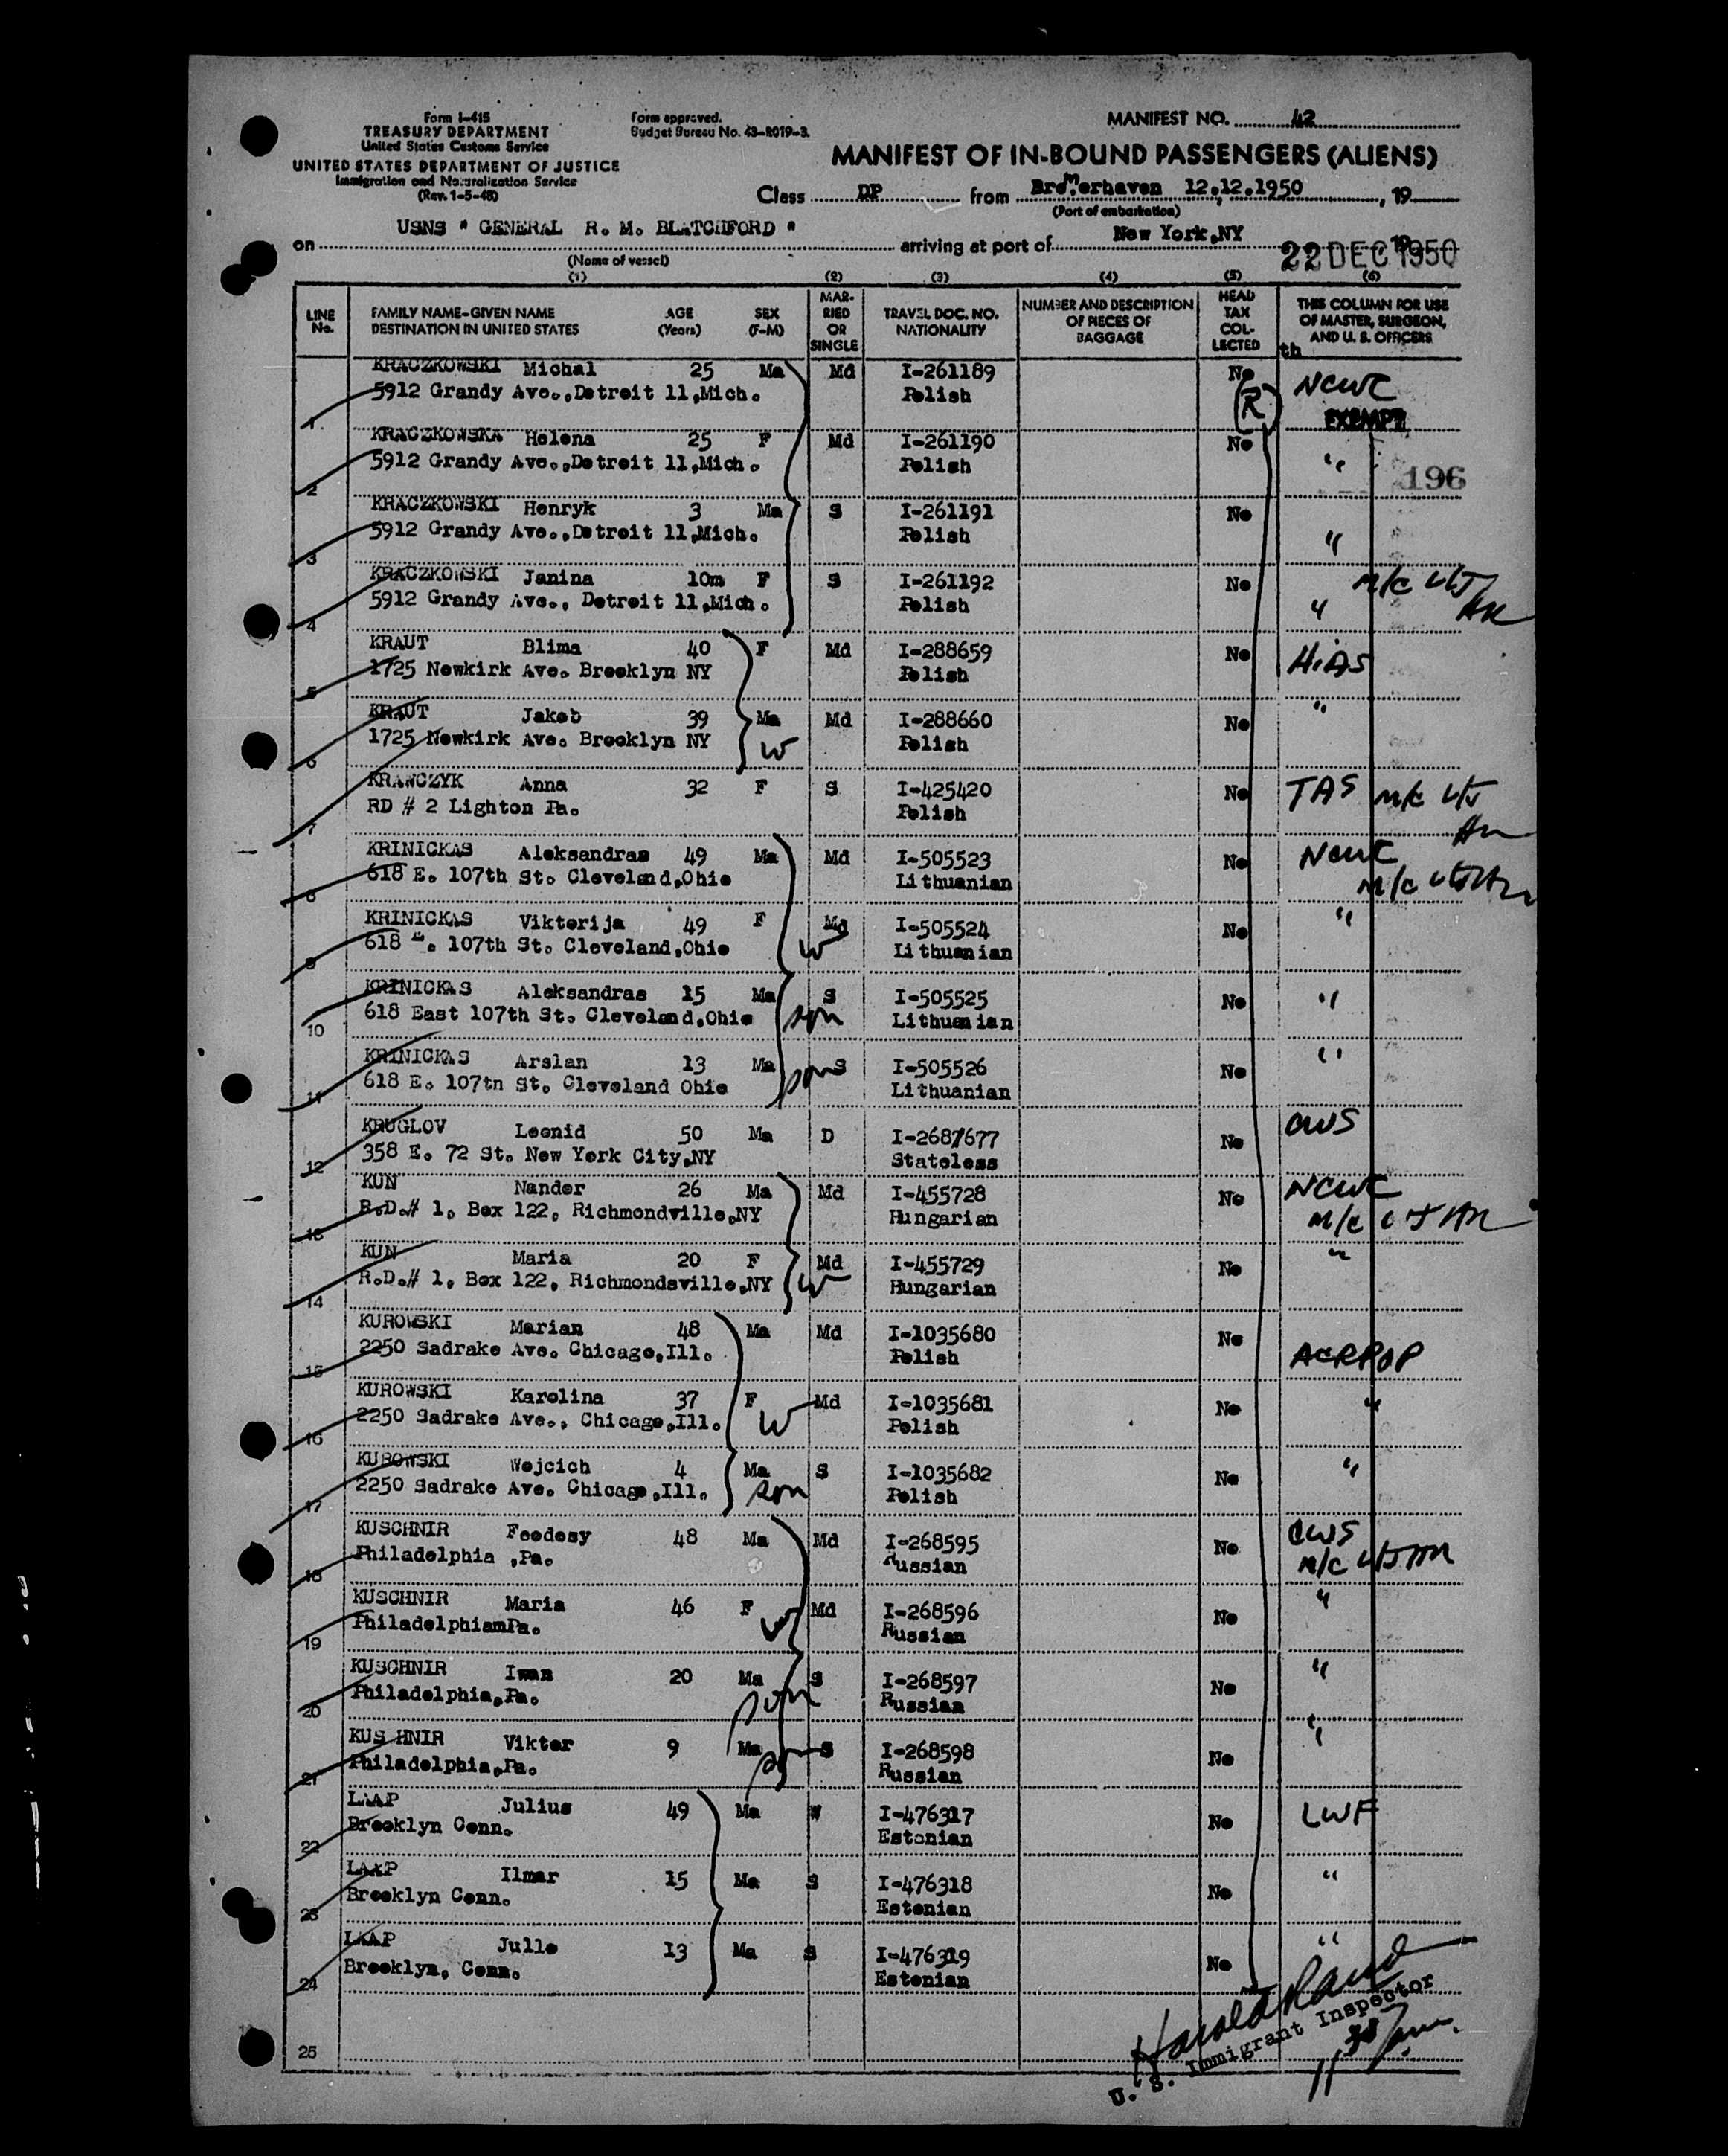 Form I-415
TREASURY DEPARTMENT
United States Customs Service
UNITED STATES DEPARTMENT OF JUSTICE
Immigration and Naturalization Service
(Rev. 1-5-48)
Form approved.
Budget Bureau No. 43-R019-3.
MANIFEST NO. 42
MANIFEST OF IN-BOUND PASSENGERS (ALIENS)
Class DP from Bremerhaven 12.12.1950, 19
(Port of embarkation)
on USNS " GENERAL R. M. BLATCHFORD " arriving at port of New York,NY 22 DEC 1950
(Name of vessel)
(1) (2) (3) (4) (5) (6)
LINE No.
FAMILY NAME-GIVEN NAME
DESTINATION IN UNITED STATES
AGE (Years)
SEX (F-M)
MARRIED OR SINGLE
TRAVEL DOC. NO. NATIONALITY
NUMBER AND DESCRIPTION OF PIECES OF BAGGAGE
HEAD TAX COLLECTED
THIS COLUMN FOR USE OF MASTER, SURGEON, AND U. S. OFFICERS
th
KRACZKOWSKI Michal 25 Ma Md I-261189 No NCWC
1 5912 Grandy Ave.,Detroit 11,Mich. Polish (R) EXEMPT
KRACZKOWSKA Helena 25 F Md I-261190 No "
2 5912 Grandy Ave.,Detroit 11,Mich. Polish 196
KRACZKOWSKI Henryk 3 Ma S I-261191 No "
3 5912 Grandy Ave.,Detroit 11,Mich. Polish
KRACZKOWSKI Janina 10m F S I-261192 No m/c
4 5912 Grandy Ave., Detroit 11,Mich. Polish "
KRAUT Blima 40 F Md I-288659 No HIAS
5 1725 Newkirk Ave. Brooklyn NY Polish
KRAUT Jakob 39 Ma Md I-288660 No "
6 1725 Newkirk Ave. Brooklyn NY W Polish
KRAWCZYK Anna 32 F S I-425420 No TAS m/c
7 RD # 2 Lighton Pa. Polish
KRINICKAS Aleksandras 49 Ma Md I-505523 No NCWC
8 618 E. 107th St. Cleveland,Ohio Lithuanian m/c
KRINICKAS Viktorija 49 F Md I-505524 No "
9 618 E. 107th St. Cleveland,Ohio W Lithuanian
KRINICKAS Aleksandras 15 Ma S I-505525 No "
10 618 East 107th St. Cleveland,Ohio son Lithuanian
KRINICKAS Arslan 13 Ma son S I-505526 No "
11 618 E. 107tn St. Cleveland Ohio Lithuanian
KRUGLOV Leonid 50 Ma D I-2687677 No CWS
12 358 E. 72 St. New York City,NY Stateless
KUN Nandor 26 Ma Md I-455728 No NCWC
13 R.D.# 1, Box 122, Richmondville,NY Hungarian m/c
KUN Maria 20 F Md I-455729 No "
14 R.D.# 1, Box 122, Richmondsville,NY W Hungarian
KUROWSKI Marian 48 Ma Md I-1035680 No
15 2250 Sadrake Ave. Chicago,Ill. Polish ACRPOP
KUROWSKI Karolina 37 F Md I-1035681 No "
16 2250 Sadrake Ave., Chicago,Ill. W Polish
KUROWSKI Wojcich 4 Ma S I-1035682 No "
17 2250 Sadrake Ave. Chicago,Ill. son Polish
KUSCHNIR Feodosy 48 Ma Md I-268595 No CWS
18 Philadelphia ,Pa. Russian m/c
KUSCHNIR Maria 46 F W Md I-268596 No "
19 PhiladelphiamPa. Russian
KUSCHNIR Iwan 20 Ma S I-268597 No "
20 Philadelphia,Pa. son Russian
KUS HNIR Viktor 9 Ma son S I-268598 No "
21 Philadelphia,Pa. Russian
LAAP Julius 49 Ma W I-476317 No LWF
22 Brooklyn Conn. Estonian
LAAP Ilmar 15 Ma S I-476318 No "
23 Brooklyn Conn. Estonian
LAAP Julle 13 Ma S I-476319 No "
24 Brooklyn, Conn. Estonian
25
Harold Rand
U. S. Immigrant Inspector